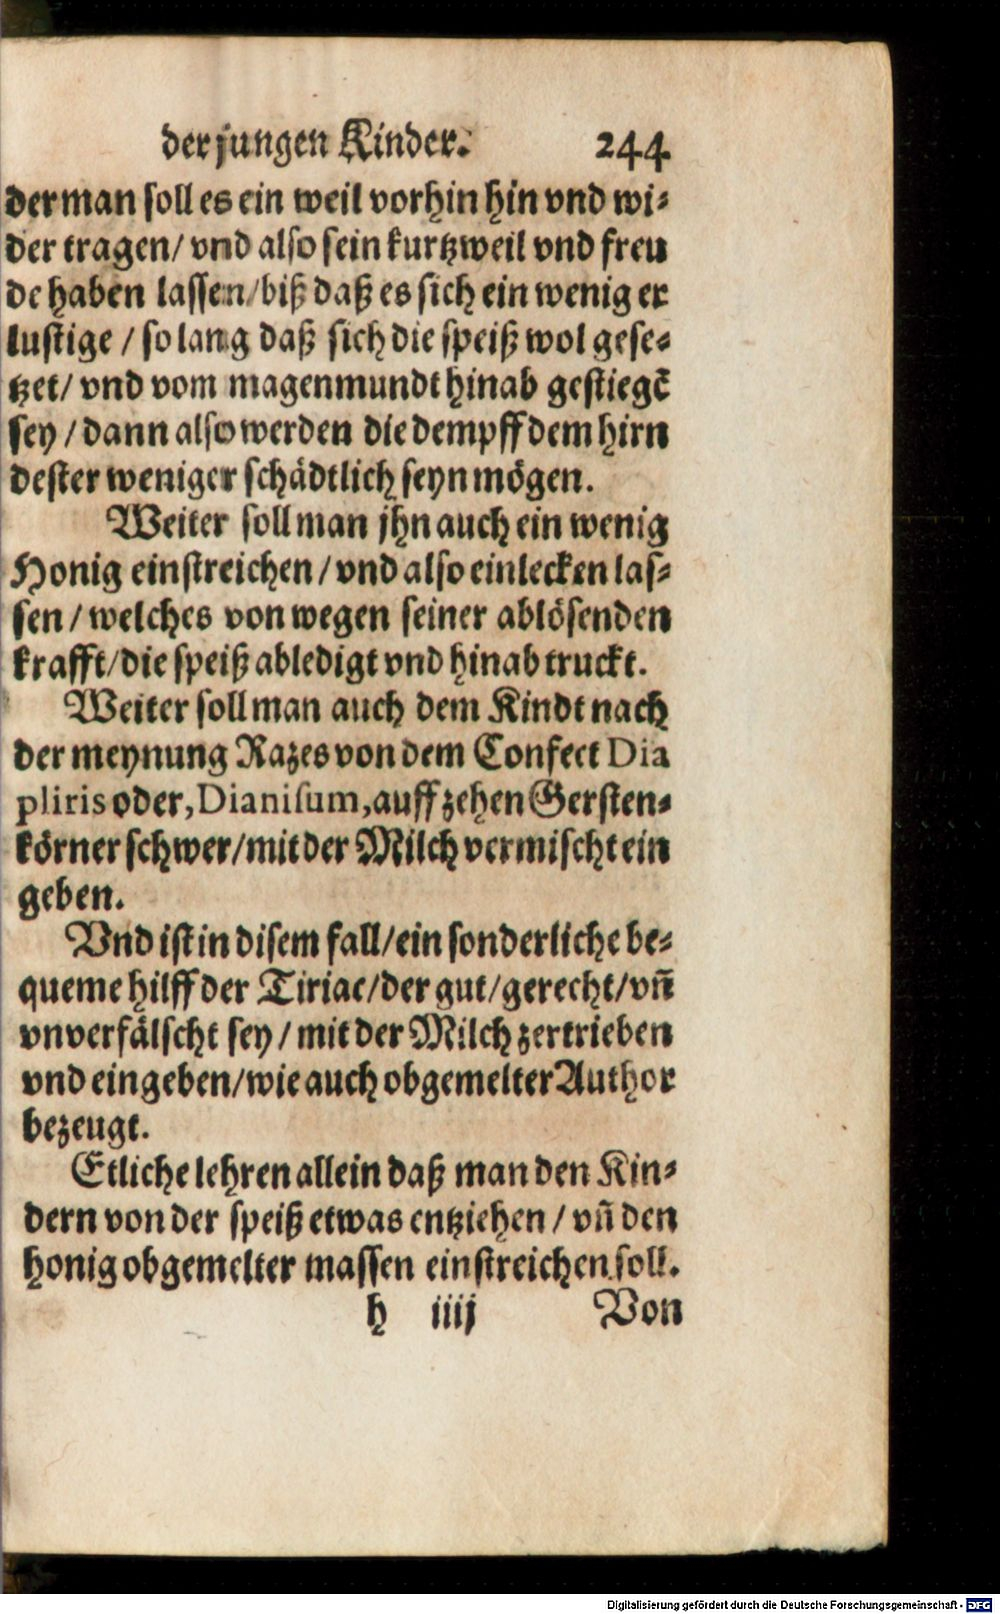 der jungen Kinder. 244
der man soll es ein weil vorhin hin vnd wi⸗
der tragen/ vnd also sein kurtzweil vnd freu
de haben lassen/biß daß es sich ein wenig er
lustige / so lang daß sich die speiß wol gese⸗
tzet/ vnd vom magenmundt hinab gestiegē
sey / dann also werden die dempff dem hirn
dester weniger schädtlich seyn mögen.
Weiter soll man jhn auch ein wenig
Honig einstreichen / vnd also einlecken las⸗
sen / welches von wegen seiner ablösenden
krafft/die speiß abledigt vnd hinab truckt.
Weiter soll man auch dem Kindt nach
der meynung Razes von dem Confect Dia
pliris oder, Dianisum, auff zehen Gersten⸗
körner schwer/mit der Milch vermischt ein
geben.
Vnd ist in disem fall/ein sonderliche be⸗
queme hilff der Tiriac/der gut/gerecht/vñ
vnverfälscht sey / mit der Milch zertrieben
vnd eingeben/wie auch obgemelter Author
bezeugt.
Etliche lehren allein daß man den Kin⸗
dern von der speiß etwas entziehen / vñ den
honig obgemelter massen einstreichen soll.
h iiij Von
Digitalisierung gefördert durch die Deutsche Forschungsgemeinschaft - DFG